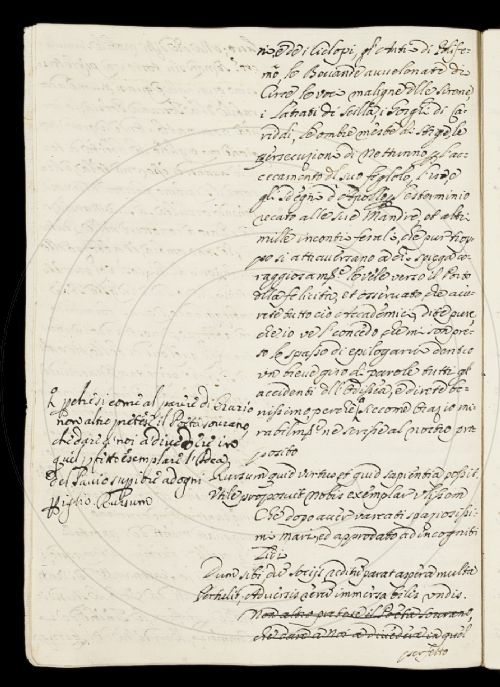 ni ede i Ciclopi, gl'Antri di Polife-
mo, le Bevande avvelenate di
Circe le voci maligne delle Serene,
i Latrati di Scilla, i Gorghi di Ca-
riddi, le ombre meste di Stige, la
persecuzione di Nettunno, l'ac-
cecamento del suo figlolo, l'ire, e
gli sdegni d'Apollo, l'esterminio
recato alle sue Mandre, et altri
mille incontri ferali, che pur trop-
po si attraversano a chi spiega co-
raggiosam.te le vele verso il Porto
della felicità, et osservato che avi-
rete tutto ciò o Accademici, dite pure
che io ve'l concedo che mi son pre-
so lo spasso di epilogarvi dentro
un breve giro di parole tutti gl'
accidenti dell'Odissea, e direte be-
nissimo perché secome Orazio mi-
rabilm.te ne serv al nostro pro-
posito
Rursum quid virtus et quid sapientia possit
Utile proposuit nobis exemplar Ulissem
Che dopo aver varcati spaziosissi-
mi mari, ed approdato ad incogniti
Lidi
Dum sibi dum socijs reditum parat aspera multa
Pertulit, adversis rerum immersabilis undis.
Non altro pretese il Poeta sovrano,
che dare a noi a divedere in quel
perfetto
petresi come al parere di Orazio
non altro pretese il Poeta sovrano,
che dare a noi a divedere in
quel perfetto esemplare l'Idea
del Savio superiore ad ogni
Rursum